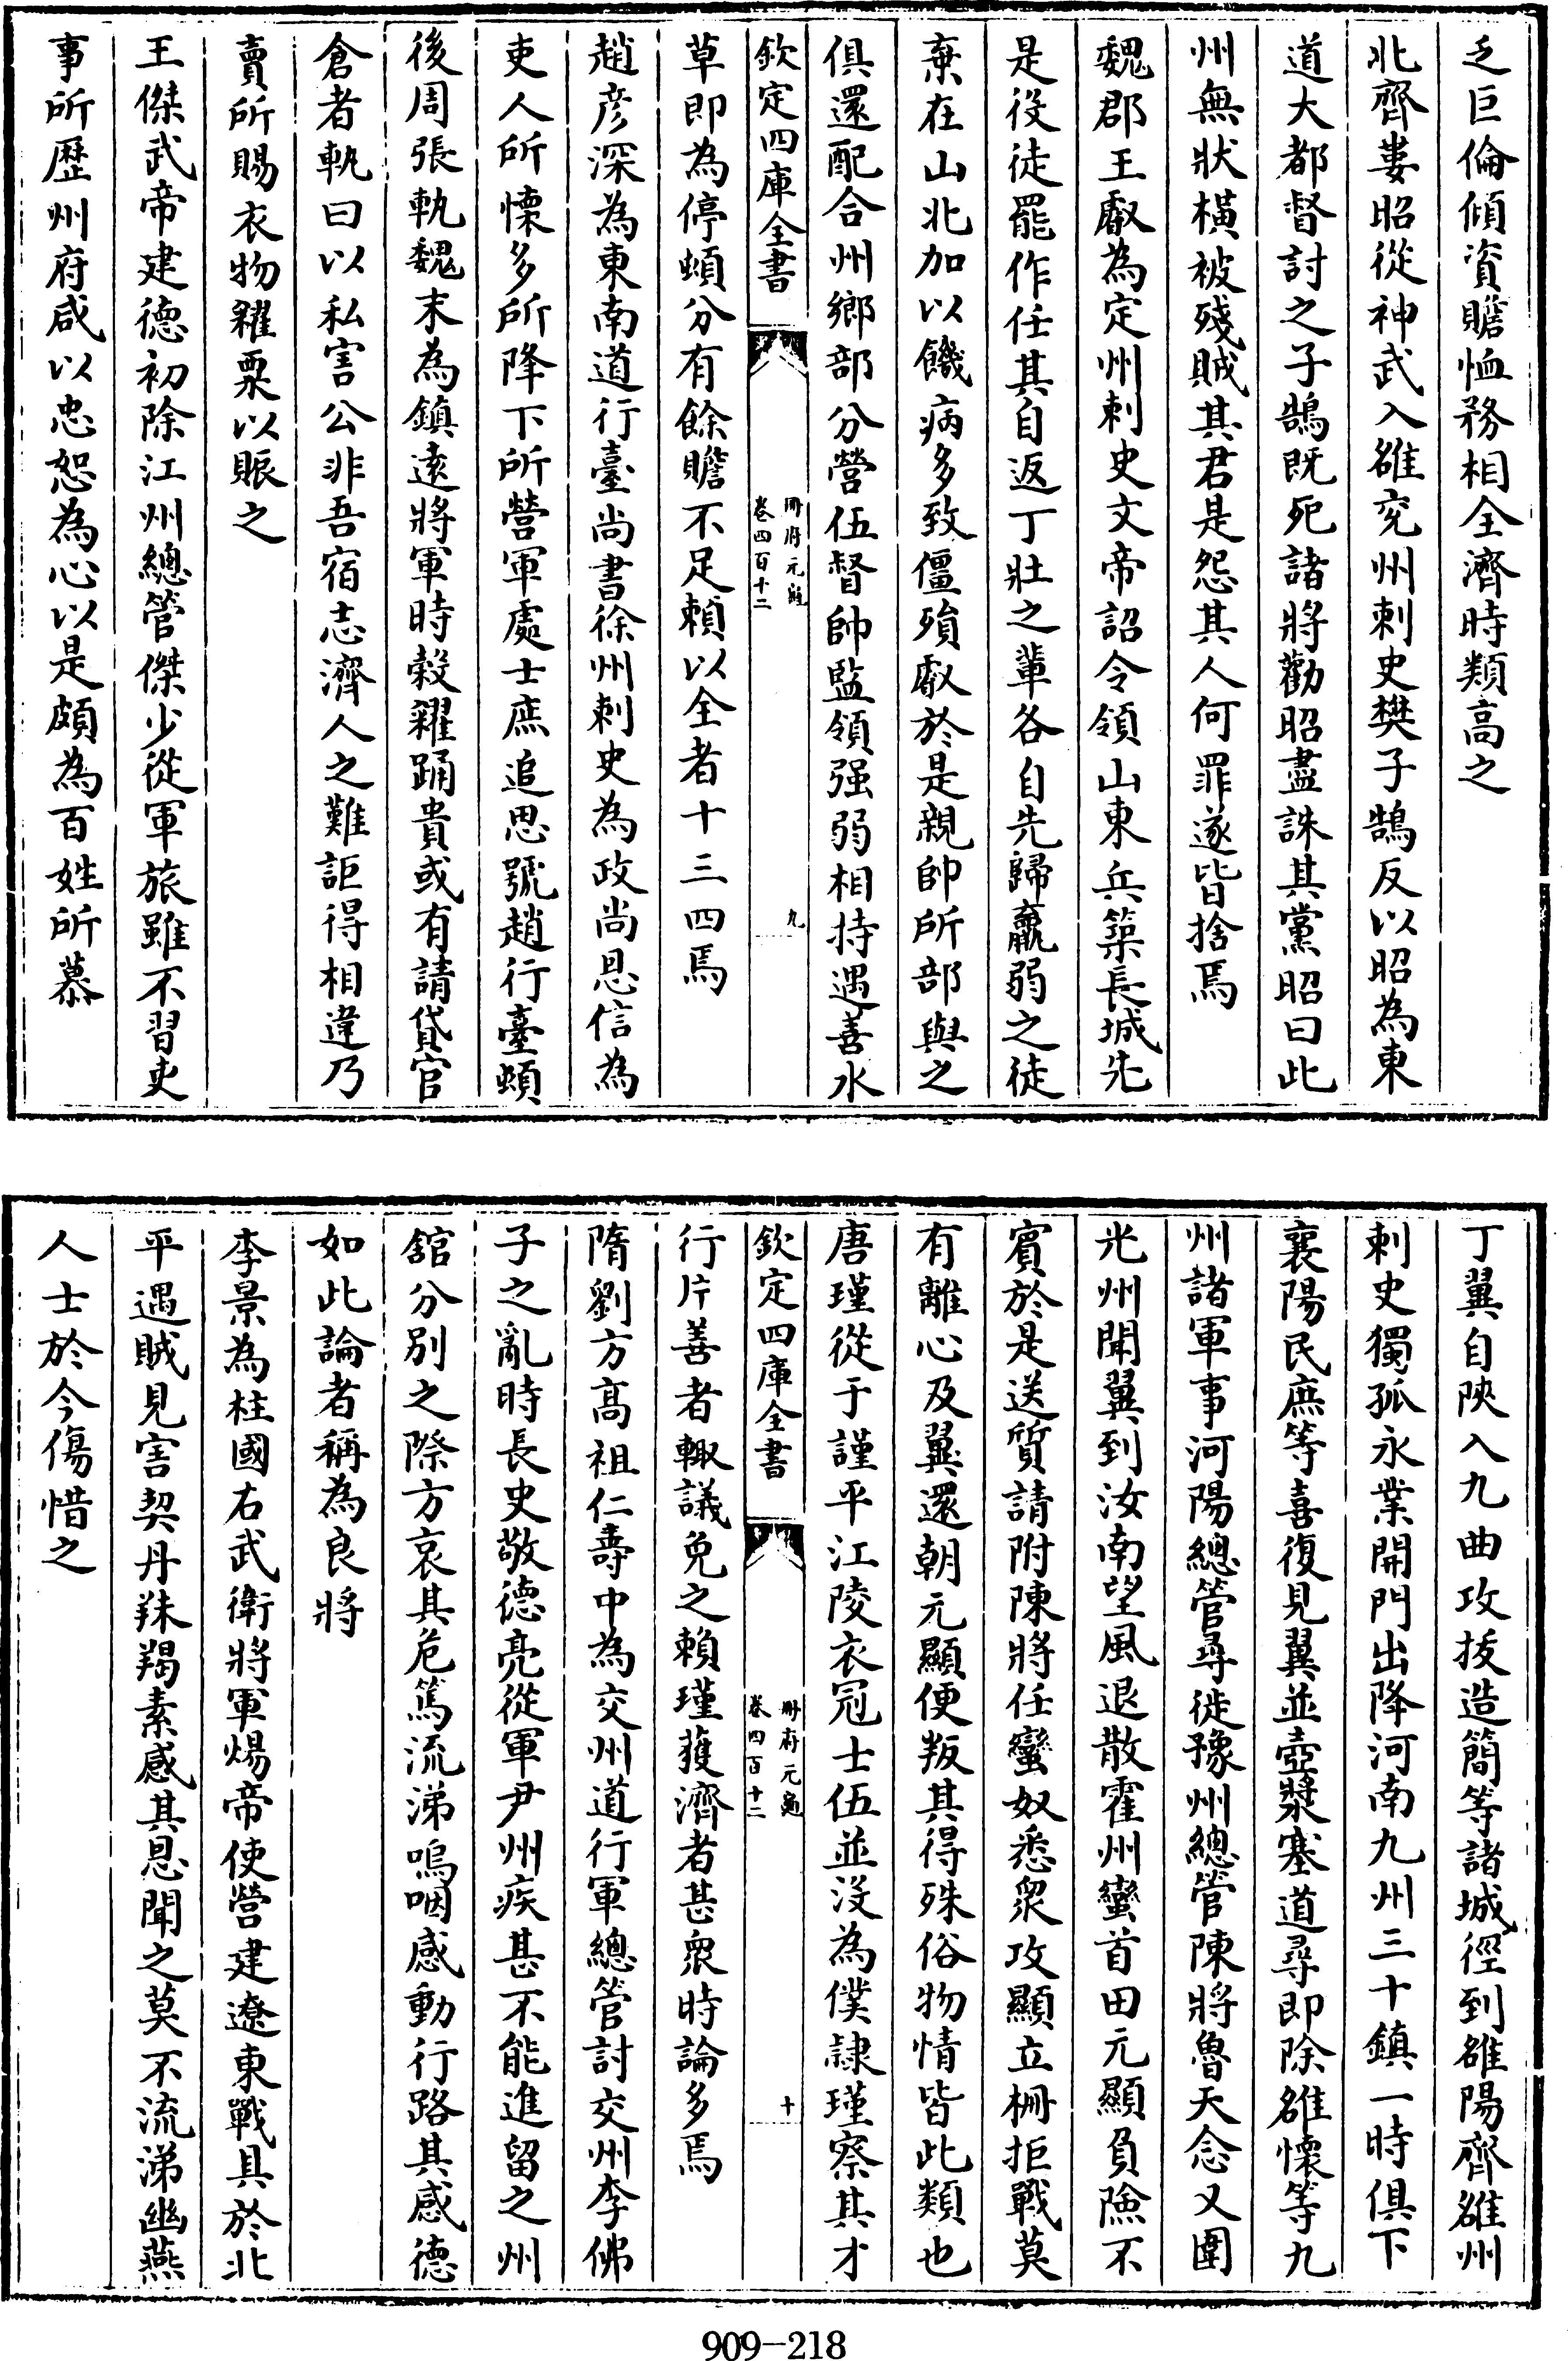 乏巨倫傾資贍恤務相全濟時類髙之
北齊婁昭從神武入雒兖州刺史樊子鵠反以昭為東
道大都督討之子鵠既死諸將勸昭盡誅其黨昭曰此
州無狀橫被殘賊其君是怨其人何罪遂皆捨焉
魏郡王叡為定州刺史文帝詔令領山東兵築長城先
是役徒罷作任其自返丁壯之輩各自先歸羸弱之徒
棄在山北加以饑病多致僵殞叡於是親帥所部與之
俱還配合州鄉部分營伍督帥監領强弱相持遇善水
欽定四庫全書
冊府元龜
卷四百十二
九
草即為停頓分有餘贍不足頼以全者十三四焉
趙彦深為東南道行臺尚書徐州刺史為政尚恩信為
吏人所懐多所降下所營軍處士庶追思號趙行臺頓
後周張軌魏末為鎮逺將軍時榖糴踊貴或有請貸官
倉者軌曰以私害公非吾宿志濟人之難詎得相違乃
賣所賜衣物糴粟以賑之
王傑武帝建德初除江州總管傑少從軍旅雖不習吏
事所歴州府咸以忠恕為心以是頗為百姓所慕
丁翼自陜入九曲攻拔造簡等諸城徑到雒陽齊雒州
刺史獨孤永業開門出降河南九州三十鎮一時俱下
襄陽民庶等喜復見翼並壺漿塞道尋即除雒懐等九
州諸軍事河陽總管尋徙豫州總管陳將魯天念又圍
光州聞翼到汝南望風退散霍州蠻首田元顯負險不
賓於是送質請附陳將任蠻奴悉衆攻顯立柵拒戰莫
有離心及翼還朝元顯便叛其得殊俗物情皆此類也
唐瑾從于謹平江陵衣冠士伍並没為僕隷瑾察其才
欽定四庫全書
冊府元龜
卷四百十二
十
行片善者輙議免之賴瑾獲濟者甚衆時論多焉
隋劉方髙祖仁壽中為交州道行軍總管討交州李佛
子之亂時長史敬德亮從軍尹州疾甚不能進留之州
舘分别之際方哀其危篤流涕嗚咽感動行路其感德
如此論者稱為良將
李景為柱國右武衛將軍煬帝使營建遼東戰具於北
平遇賊見害契丹靺羯素感其恩聞之莫不流涕幽燕
人士於今傷惜之
909-218